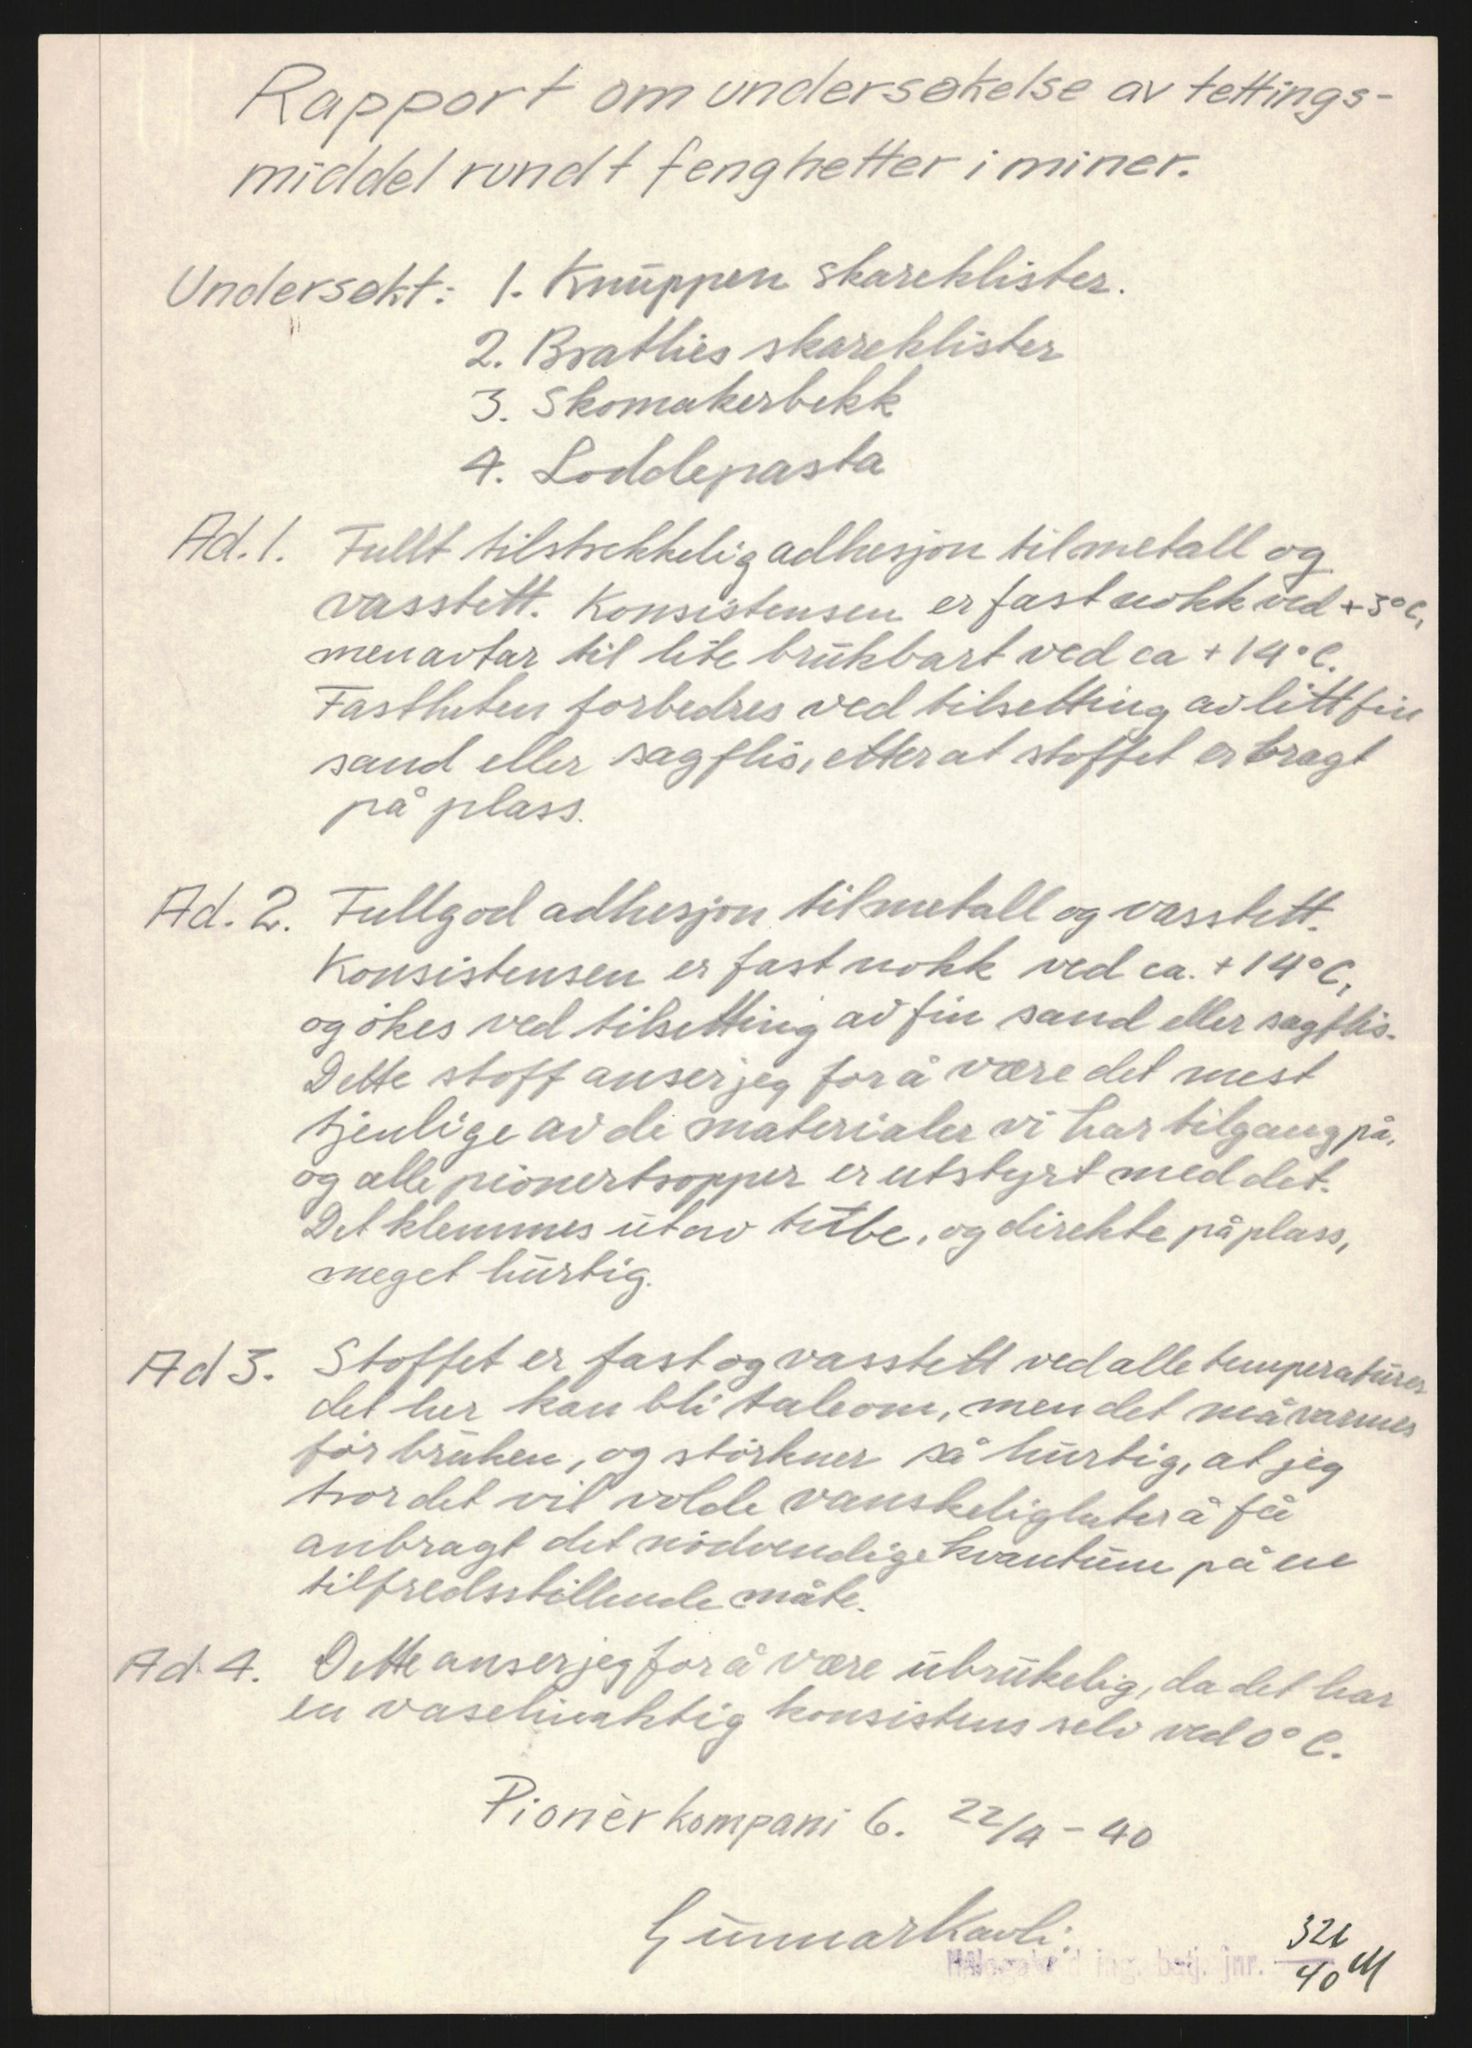 Rapport om undersøkelse av tettings-
middel rundt fenghetter i miner.
Undersøkt: 1. Knuppen skareklister.
2. Bratlies skareklister
3. Skomakerbekk
4. Loddepasta
Ad. 1. Fullt tilstrekkelig adhesjon til metall og
vasstett. Konsistensen er fast nokk ved +3°C,
men avtar til lite brukbart ved ca +14°C.
Fastheten forbedres ved tilsetting av litt fin
sand eller sagflis, etter at stoffet er bragt
på plass.
Ad. 2. Fullgod adhesjon til metall og vasstett.
Konsistensen er fast nokk ved ca. +14°C,
og økes ved tilsetting av fin sand eller sagflis.
Dette stoff anser jeg for å være det mest
tjenlige av de materialer vi har tilgang på,
og alle pionertropper er utstyrt med det.
Det klemmes ut av tube, og direkte på plass,
meget hurtig.
Ad 3. Stoffet er fast og vasstett ved alle temperaturer
det her kan bli tale om, men det må varmes
før bruken, og størkner så hurtig, at jeg
tror det vil volde vanskeligheter å få
anbragt det nødvendige kvantum på en
tilfredsstillende måte.
Ad. 4. Dette anser jeg for å være ubrukelig, da det har
en vaselinaktig konsistens selv ved 0°C.
Pionèrkompani 6. 22/4-40
Gunnar Kavli.
ing. batj. jnr. 321/40 M